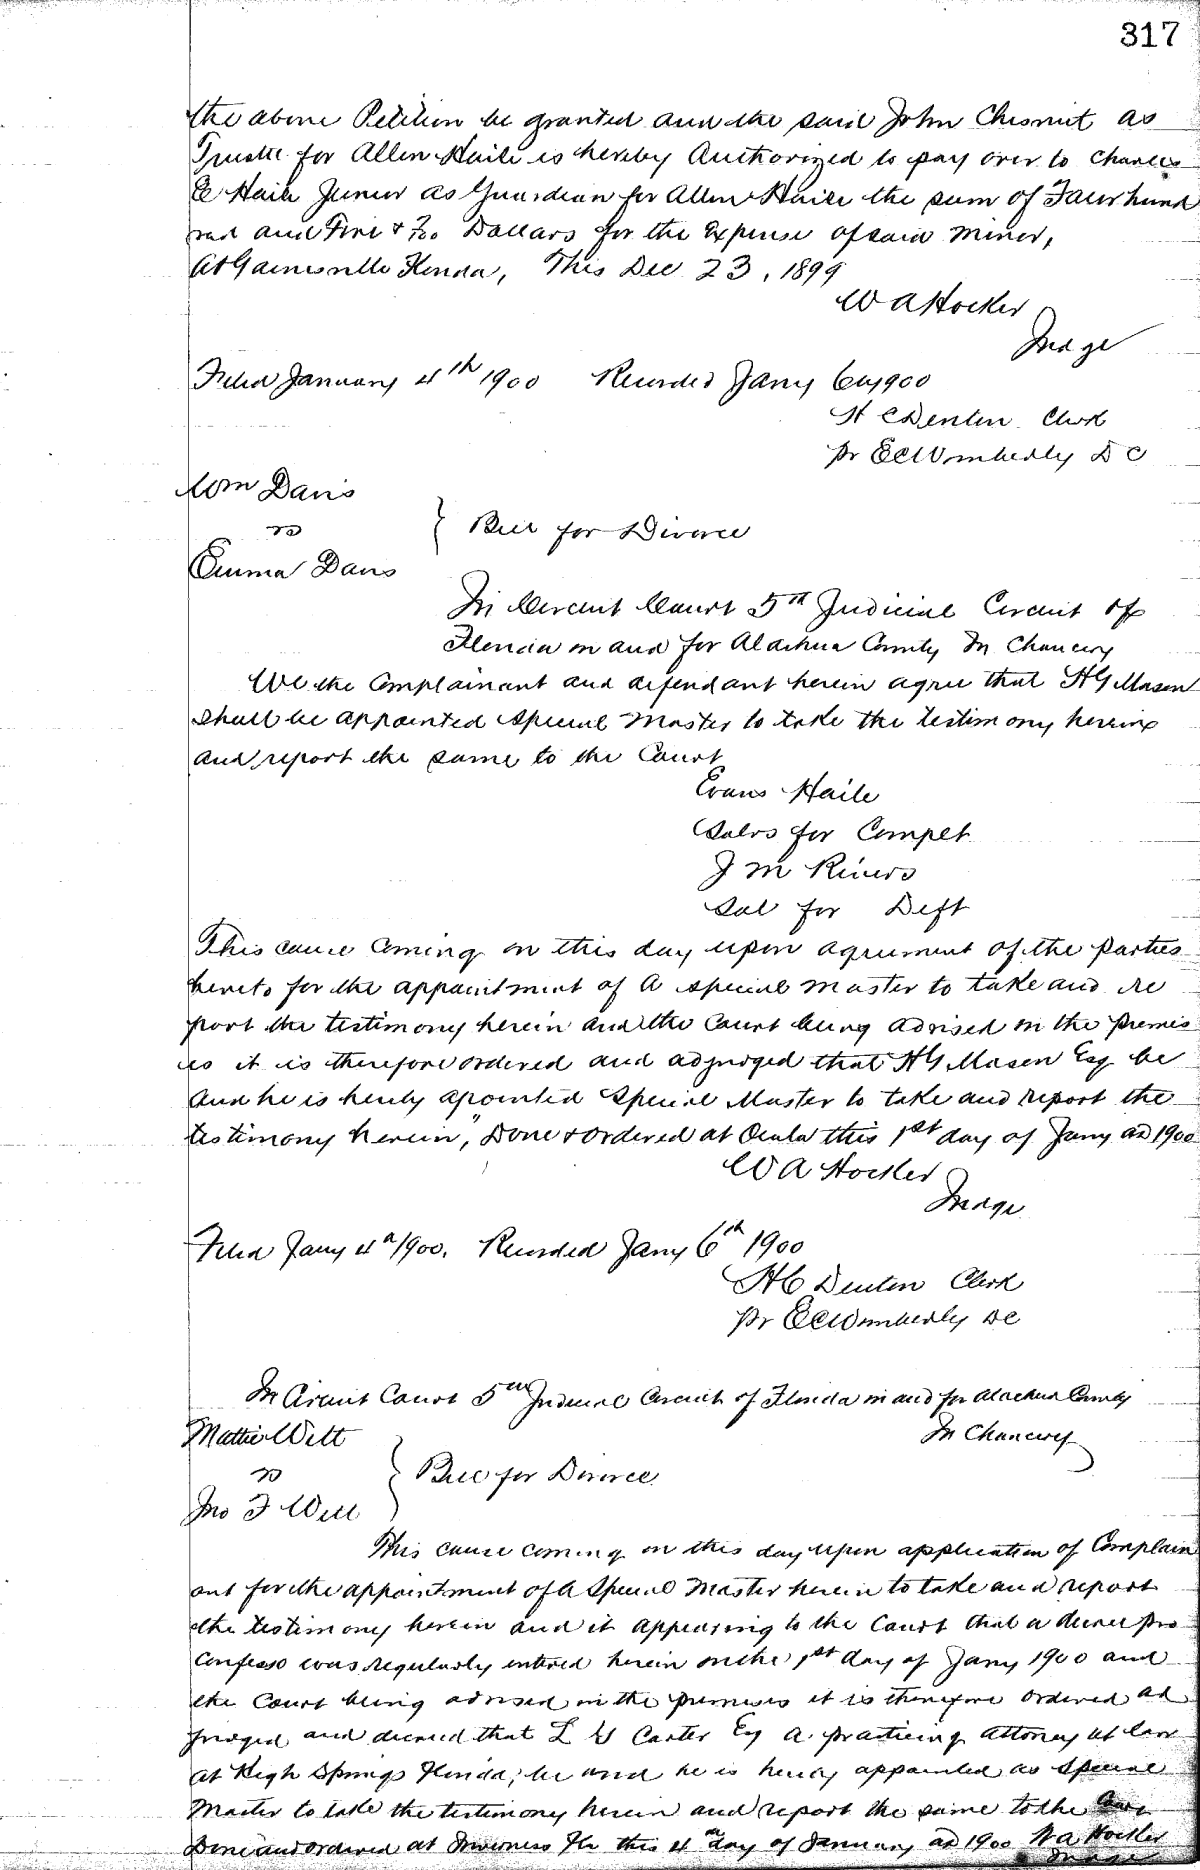 317
the above Petition be granted and the said John Chesnut as
Trustee for Allen Haile is hereby Authorized to pay over to Charles
E Haile Junior as Guardian for Allen Haile the sum of Four hund
red and Five & Dollars for the Expense of said minor,
At Gainesville Florida, This Dec 23, 1899
W A Hocker
Judge
Filed January 4th 1900 Recorded Jany 6th 1900
H C Denton Clerk
pr E C Wimberly D C
Wm Davis
vs } Bill for Divorce
Emma Davis
In Circuit Court 5th Judicial Circuit of
Florida in and for Alachua County In Chancery
We the Complainant and defendant herein agree that H G Mason
shall be appointed Special Master to take the testimony herein
and report the same to the Court
Evans Haile
Solrs for Complt
J M Rivers
Sol for Deft
This cause coming on this day upon agreement of the parties
hereto for the appointment of a special master to take and re
port the testimony herein and the Court being advised in the premis
es it is therefore ordered and adjudged that H G Mason Esq be
and he is hereby apointed Special Master to take and report the
testimony herein, Done & ordered at Ocala this 1st day of Jany AD 1900
W A Hocker
Judge
Filed Jany 4th 1900. Recorded Jany 6th 1900
H C Denton Clerk
pr E C Wimberly DC
In Circuit Court 5th Judicial Circuit of Florida in and for Alachua County
Mattie Witt In Chancery
vs } Bill for Divorce
Jno F Witt
This cause coming on this day upon application of Complain
ant for the appointment of a Special Master herein to take and report
the testimony herein and it appearing to the Court that a decree pro
Confesso was regularly entered herein on the 1st day of Jany 1900 and
the Court being advised in the premises it is therefore ordered ad
judged and decreed that L Carter Esq a practicing attorney at law
at High Springs Florida, be and he is hereby appointed as special
Master to take the testimony herein and report the same to the
Done and ordered at Inverness Fla this 4th day of January AD 1900 W A Hocker
Judge